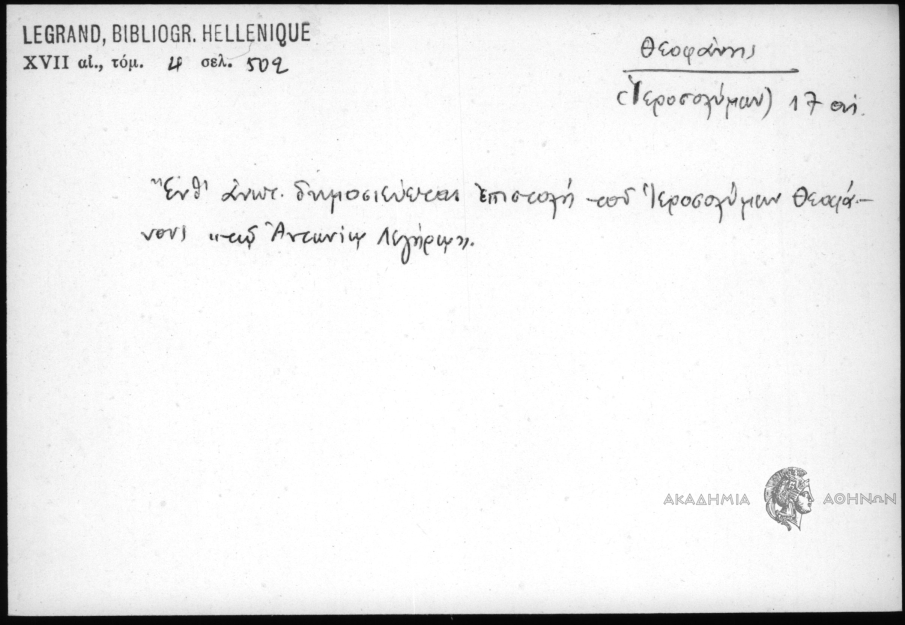 LEGRAND, BIBLIOGR. HELLENIQUE
XVII αἰ., τόμ. 4 σελ. 502
Θεοφάνης
(Ἱεροσολύμων) 17 αἰ.
Ἔνθ' ἀνωτ. δημοσιεύεται ἐπιστολή τοῦ Ἱεροσολύμων Θεοφά-
νους "τῷ Ἀντωνίῳ Λεγήρῳ".
ΑΚΑΔΗΜΙΑ ΑΘΗΝΩΝ